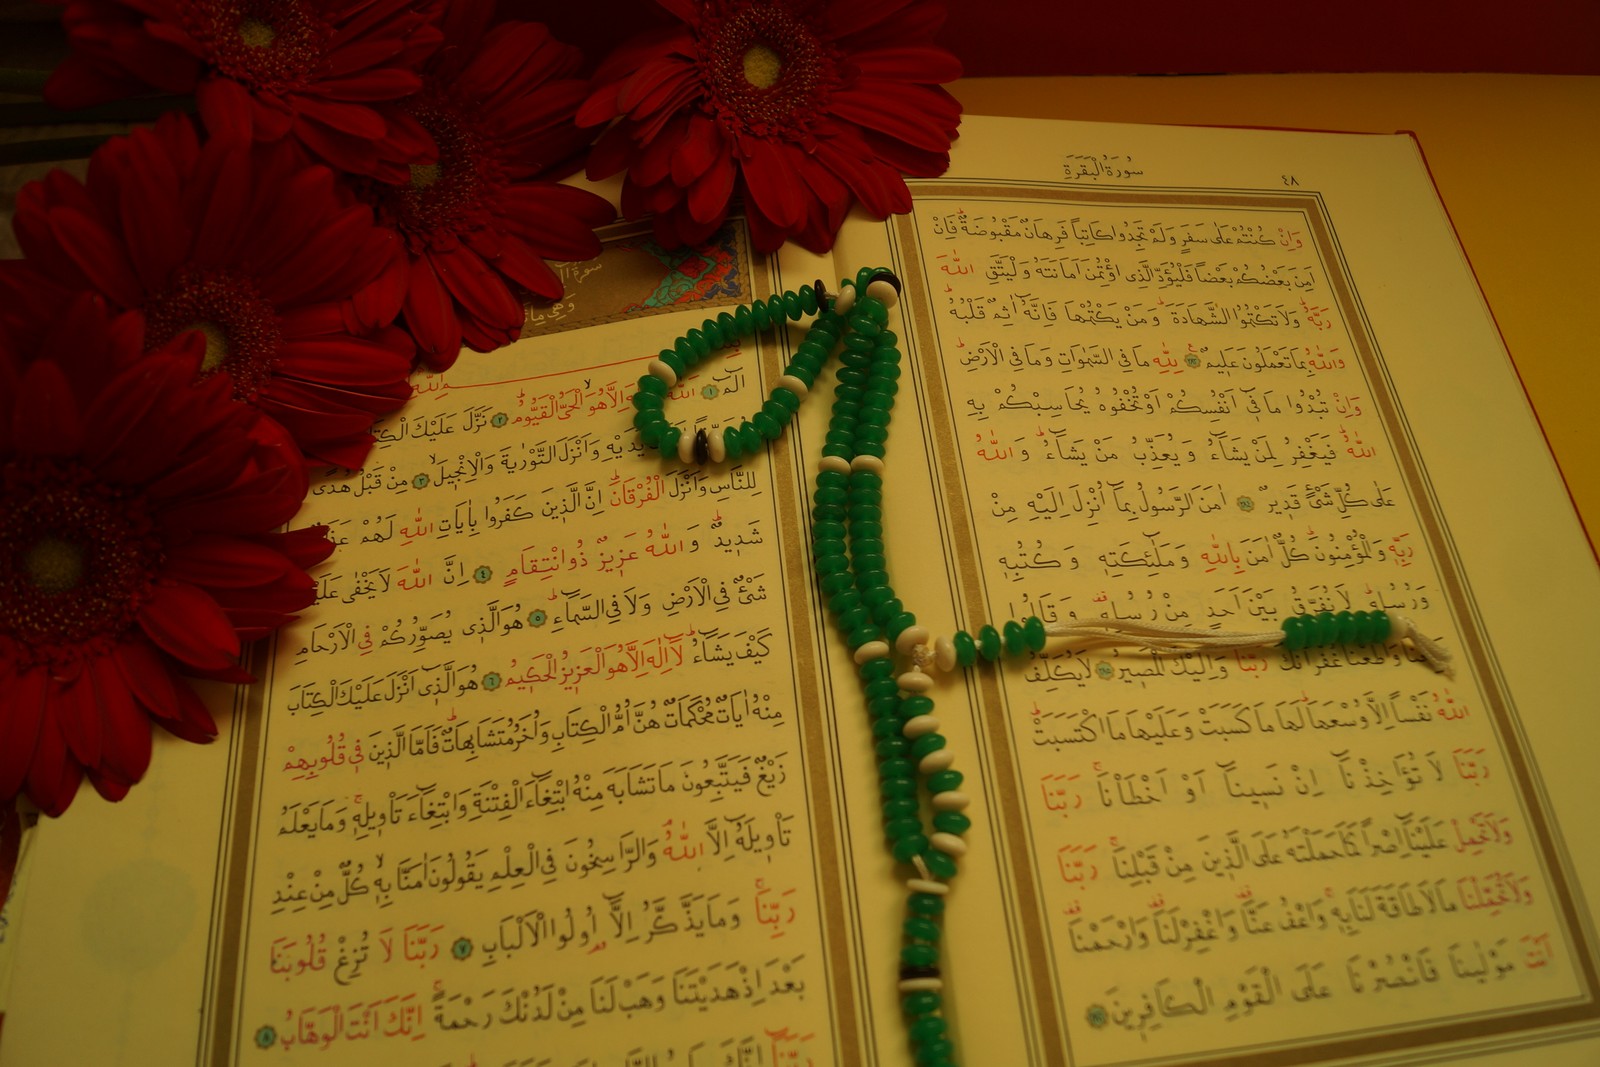 سُورَةُ الْبَقَرَةِ
٤٨
وَاِنْ كُنْتُمْ عَلٰى سَفَرٍ وَلَمْ تَجِدُوا كَاتِبًا فَرِهَانٌ مَقْبُوضَةٌۜ فَاِنْ
اَمِنَ بَعْضُكُمْ بَعْضًا فَلْيُؤَدِّ الَّذِى اؤْتُمِنَ اَمَانَتَهُ وَلْيَتَّقِ اللّٰهَ
رَبَّهُۜ وَلَا تَكْتُمُوا الشَّهَادَةَۜ وَمَنْ يَكْتُمْهَا فَاِنَّهُٓ اٰثِمٌ قَلْبُهُۜ
وَاللّٰهُ بِمَا تَعْمَلُونَ عَلِيمٌ ۟ لِلّٰهِ مَا فِى السَّمٰوَاتِ وَمَا فِى الْاَرْضِۜ
وَاِنْ تُبْدُوا مَا فِٓى اَنْفُسِكُمْ اَوْ تُخْفُوهُ يُحَاسِبْكُمْ بِهِ
اللّٰهُۜ فَيَغْفِرُ لِمَنْ يَشَٓاءُ وَيُعَذِّبُ مَنْ يَشَٓاءُۜ وَاللّٰهُ
عَلٰى كُلِّ شَىْءٍ قَدِيرٌ اٰمَنَ الرَّسُولُ بِمَٓا اُنْزِلَ اِلَيْهِ مِنْ
رَبِّهِ وَالْمُؤْمِنُونَۜ كُلٌّ اٰمَنَ بِاللّٰهِ وَمَلٰٓئِكَتِهِ وَكُتُبِهِ
وَرُسُلِهِۜ لَا نُفَرِّقُ بَيْنَ اَحَدٍ مِنْ رُسُلِهِ۠ وَقَالُوا
وَاَطَعْنَا غُفْرَانَكَ رَبَّنَا وَاِلَيْكَ الْمَصِيرُ لَا يُكَلِّفُ
اللّٰهُ نَفْسًا اِلَّا وُسْعَهَاۜ لَهَا مَا كَسَبَتْ وَعَلَيْهَا مَا اكْتَسَبَتْۜ
رَبَّنَا لَا تُؤَاخِذْنَٓا اِنْ نَسِينَٓا اَوْ اَخْطَاْنَاۚ رَبَّنَا
وَلَا تَحْمِلْ عَلَيْنَٓا اِصْرًا كَمَا حَمَلْتَهُ عَلَى الَّذِينَ مِنْ قَبْلِنَاۚ رَبَّنَا
وَلَا تُحَمِّلْنَا مَا لَا طَاقَةَ لَنَا بِهِۚ وَاعْفُ عَنَّا۠ وَاغْفِرْ لَنَا۠ وَارْحَمْنَا۠
اَنْتَ مَوْلٰينَا فَانْصُرْنَا عَلَى الْقَوْمِ الْكَافِرِينَ
الٓمٓ ١ اللّٰهُ اِلَّا هُوَۙ الْحَىُّ الْقَيُّومُۜ ٢ نَزَّلَ عَلَيْكَ
يَدَيْهِ وَاَنْزَلَ التَّوْرٰيةَ وَالْاِنْجِيلَۙ ٣ مِنْ قَبْلُ هُدًى
لِلنَّاسِ وَاَنْزَلَ الْفُرْقَانَۜ اِنَّ الَّذِينَ كَفَرُوا بِاٰيَاتِ اللّٰهِ لَهُمْ
شَدِيدٌۜ وَاللّٰهُ عَزِيزٌ ذُو انْتِقَامٍ ٤ اِنَّ اللّٰهَ لَا يَخْفٰى
شَىْءٌ فِى الْاَرْضِ وَلَا فِى السَّمَٓاءِۜ ٥ هُوَ الَّذِى يُصَوِّرُكُمْ فِى الْاَرْحَامِ
كَيْفَ يَشَٓاءُۜ لَٓا اِلٰهَ اِلَّا هُوَ الْعَزِيزُ الْحَكِيمُ ٦ هُوَ الَّذِٓى اَنْزَلَ عَلَيْكَ الْكِتَابَ
مِنْهُ اٰيَاتٌ مُحْكَمَاتٌ هُنَّ اُمُّ الْكِتَابِ وَاُخَرُ مُتَشَابِهَاتٌۜ فَاَمَّا الَّذِينَ فِى قُلُوبِهِمْ
زَيْغٌ فَيَتَّبِعُونَ مَا تَشَابَهَ مِنْهُ ابْتِغَٓاءَ الْفِتْنَةِ وَابْتِغَٓاءَ تَاْوِيلِهِۚ وَمَا يَعْلَمُ
تَاْوِيلَهُٓ اِلَّا اللّٰهُۢ وَالرَّاسِخُونَ فِى الْعِلْمِ يَقُولُونَ اٰمَنَّا بِهِۙ كُلٌّ مِنْ عِنْدِ
رَبِّنَاۚ وَمَا يَذَّكَّرُ اِلَّٓا اُولُوا الْاَلْبَابِ ٧ رَبَّنَا لَا تُزِغْ قُلُوبَنَا
بَعْدَ اِذْ هَدَيْتَنَا وَهَبْ لَنَا مِنْ لَدُنْكَ رَحْمَةًۚ اِنَّكَ اَنْتَ الْوَهَّابُ ٨
رَبَّنَٓا اِنَّكَ